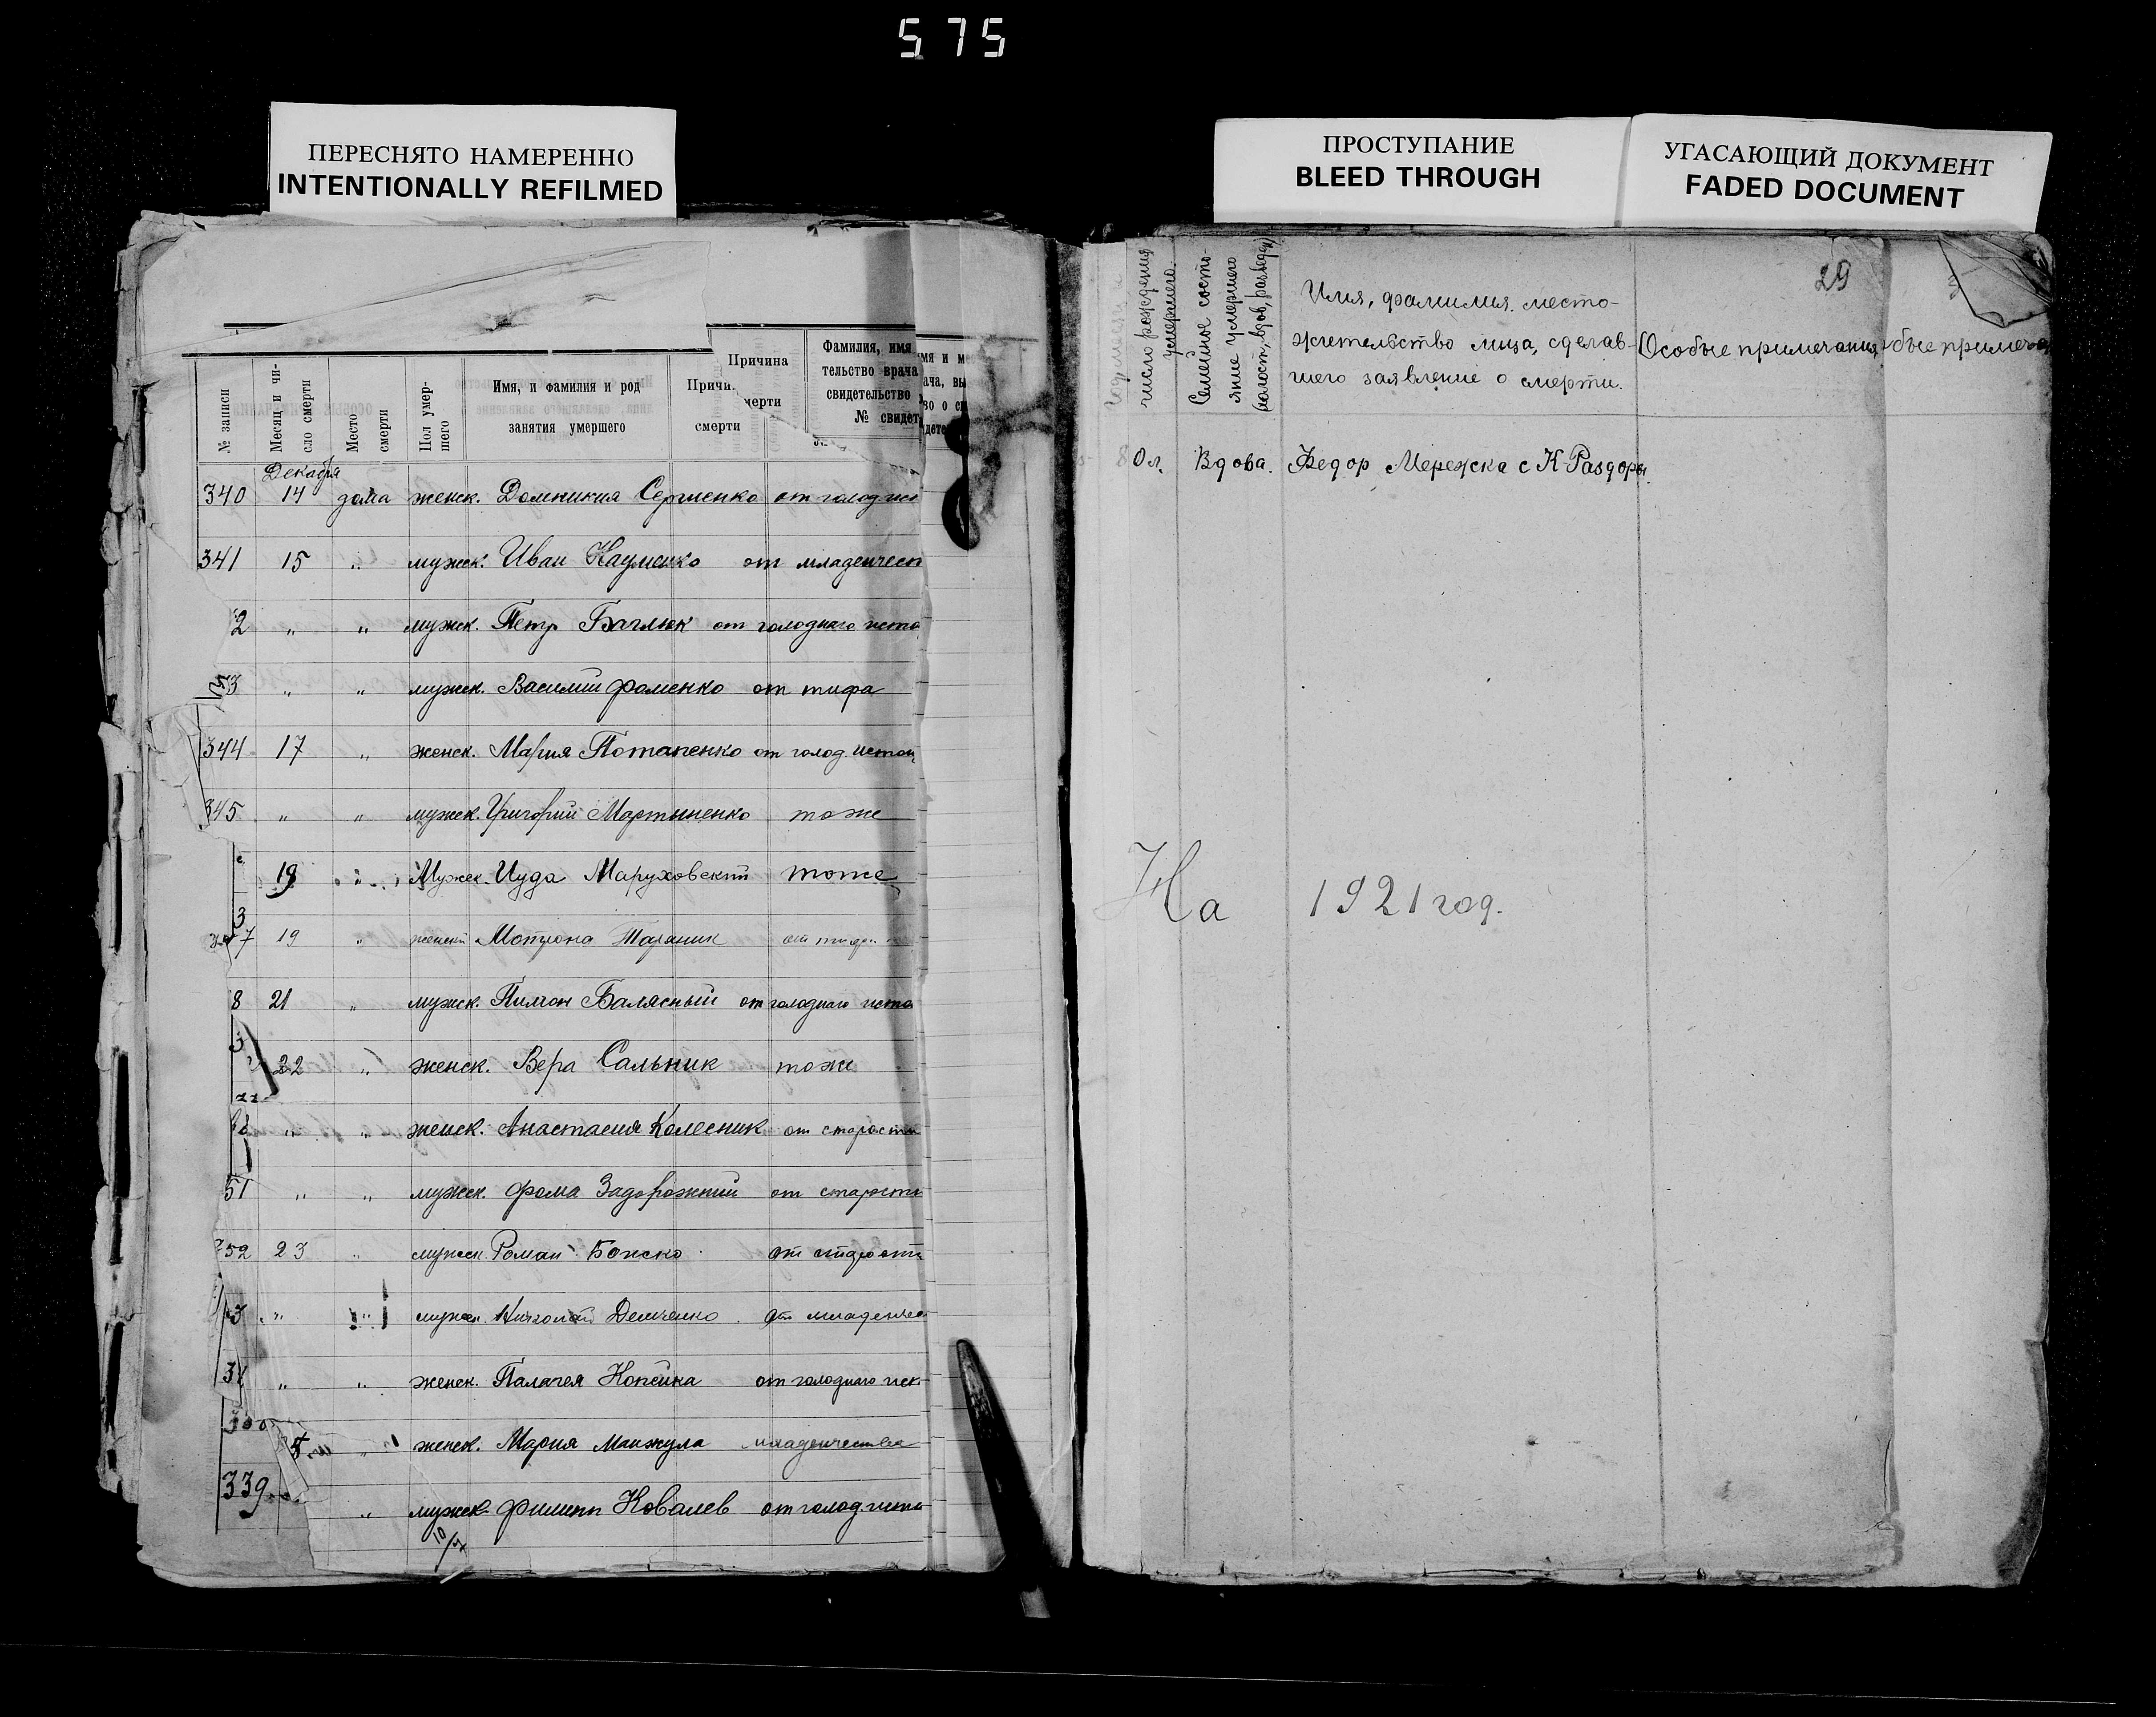 575
ПЕРЕСНЯТО НАМЕРЕННО
INTENTIONALLY REFILMED
ПРОСТУПАНИЕ
BLEED THROUGH
УГАСАЮЩИЙ ДОКУМЕНТ
FADED DOCUMENT
№ записи
Месяц и чи-
сло смерти
Место
смерти
Пол умер-
шего
Имя, и фамилия и род
занятия умершего
Причина
смерти
Фамилия, имя
тельство врача
свидетельство
№ свидет
Декабря
340 14 дома женск. Домникия Сергиенко от голод. исто
341 15 " мужск. Иван Науменко от младенчест
2 " " мужск. Петр Баглюк от голоднаго исто
3 " " мужск. Василий Фоменко от тифа
344 17 " женск. Мария Потапенко от голод. истощ
345 " " мужск. Григорий Мартыненко тоже
19 " Мужск. Иуда Маруховский тоже
7 19 " женск Мотрона Тараник от тифа
8 21 " мужск. Пимон Балясный от голоднаго исто
22 " женск. Вера Сальник тоже
" " женск. Анастасия Колесник от старости
51 " " мужск. Фома Задорожний от старости
352 23 " мужск. Роман от старости
3 " " мужск. Николай Демченко от младенчес
" " женск. Палагея Копейка от голоднаго ист
" женск. Мария Манжула младенчества
339 " мужск. Филипп Ковалев от голод. исто
29
число рождения
умершего.
Семейное состо-
яние умершего
(холост, вдов, развед)
Имя, фамилия. место-
жительство лица, сделав-
шего заявление о смерти.
Особые примечания
бые примеча
80 л. Вдова. Федор Мережка с К-Раздоры.
На 1921 год.